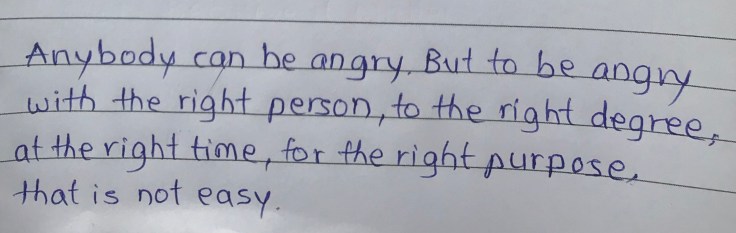 Anybody can be angry. But to be angry
with the right person, to the right degree,
at the right time, for the right purpose,
that is not easy.